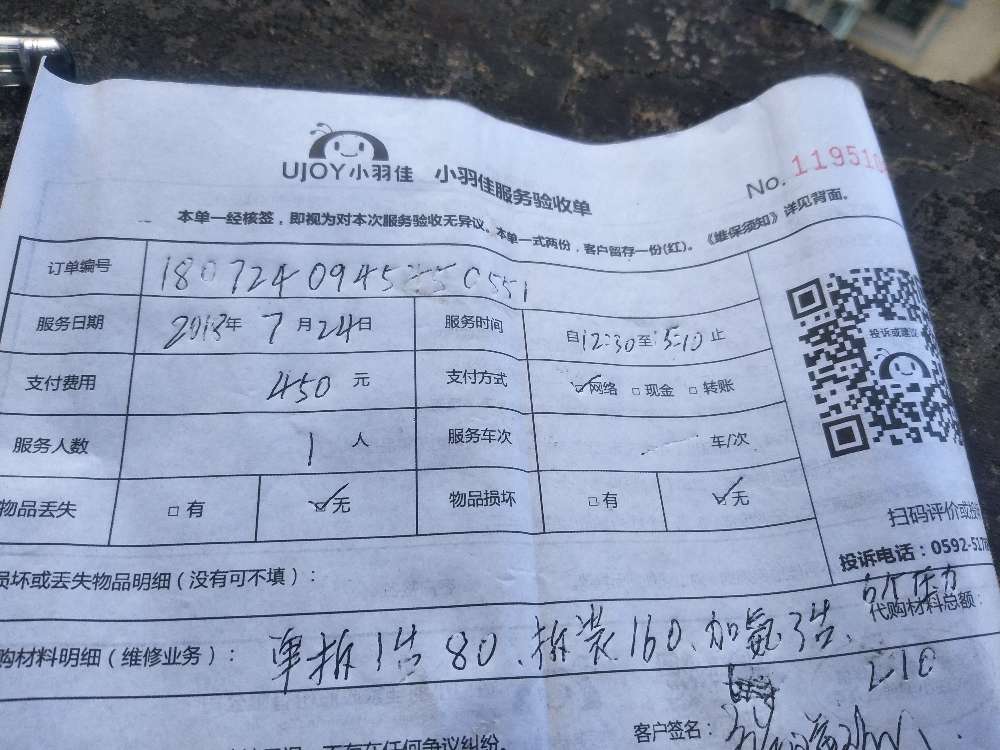 UJOY小羽佳 小羽佳服务验收单
No. 119510
本单一经核签，即视为对本次服务验收无异议。本单一式两份，客户留存一份(红)。《维保须知》详见背面。
订单编号
服务日期 2018年 7月24日 服务时间 自12:30至15:10止
支付费用 450 元 支付方式 ☑网络 □现金 □转账
服务人数 1 人 服务车次 车/次
物品丢失 □有 ☑无 物品损坏 □有 ☑无
投诉或建议
扫码评价或投
投诉电话：0592-517
损坏或丢失物品明细（没有可不填）：
购材料明细（维修业务）： 单拆1台80、拆装160、加氨3台、
代购材料总额：
210
客户签名：
不存在任何争议纠纷。